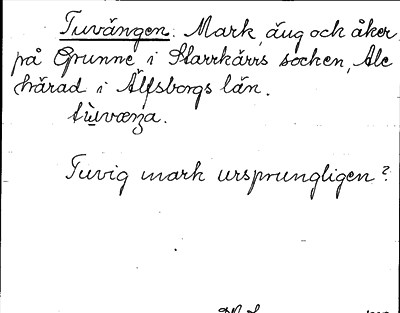 Tuvängen. Mark, äng och åker
på Grunne i Starrkärrs socken, Ale
härad i Älfsborgs län.
Tuvig mark ursprungligen?